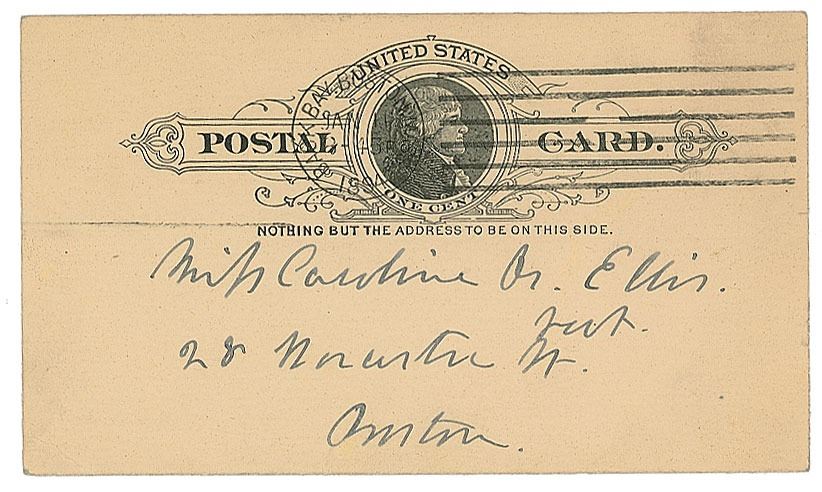 UNITED STATES
POSTAL CARD.
ONE CENT
BACK BAY
NOTHING BUT THE ADDRESS TO BE ON THIS SIDE.
Miss Caroline Ellis.
28 Worcester St.
Boston.